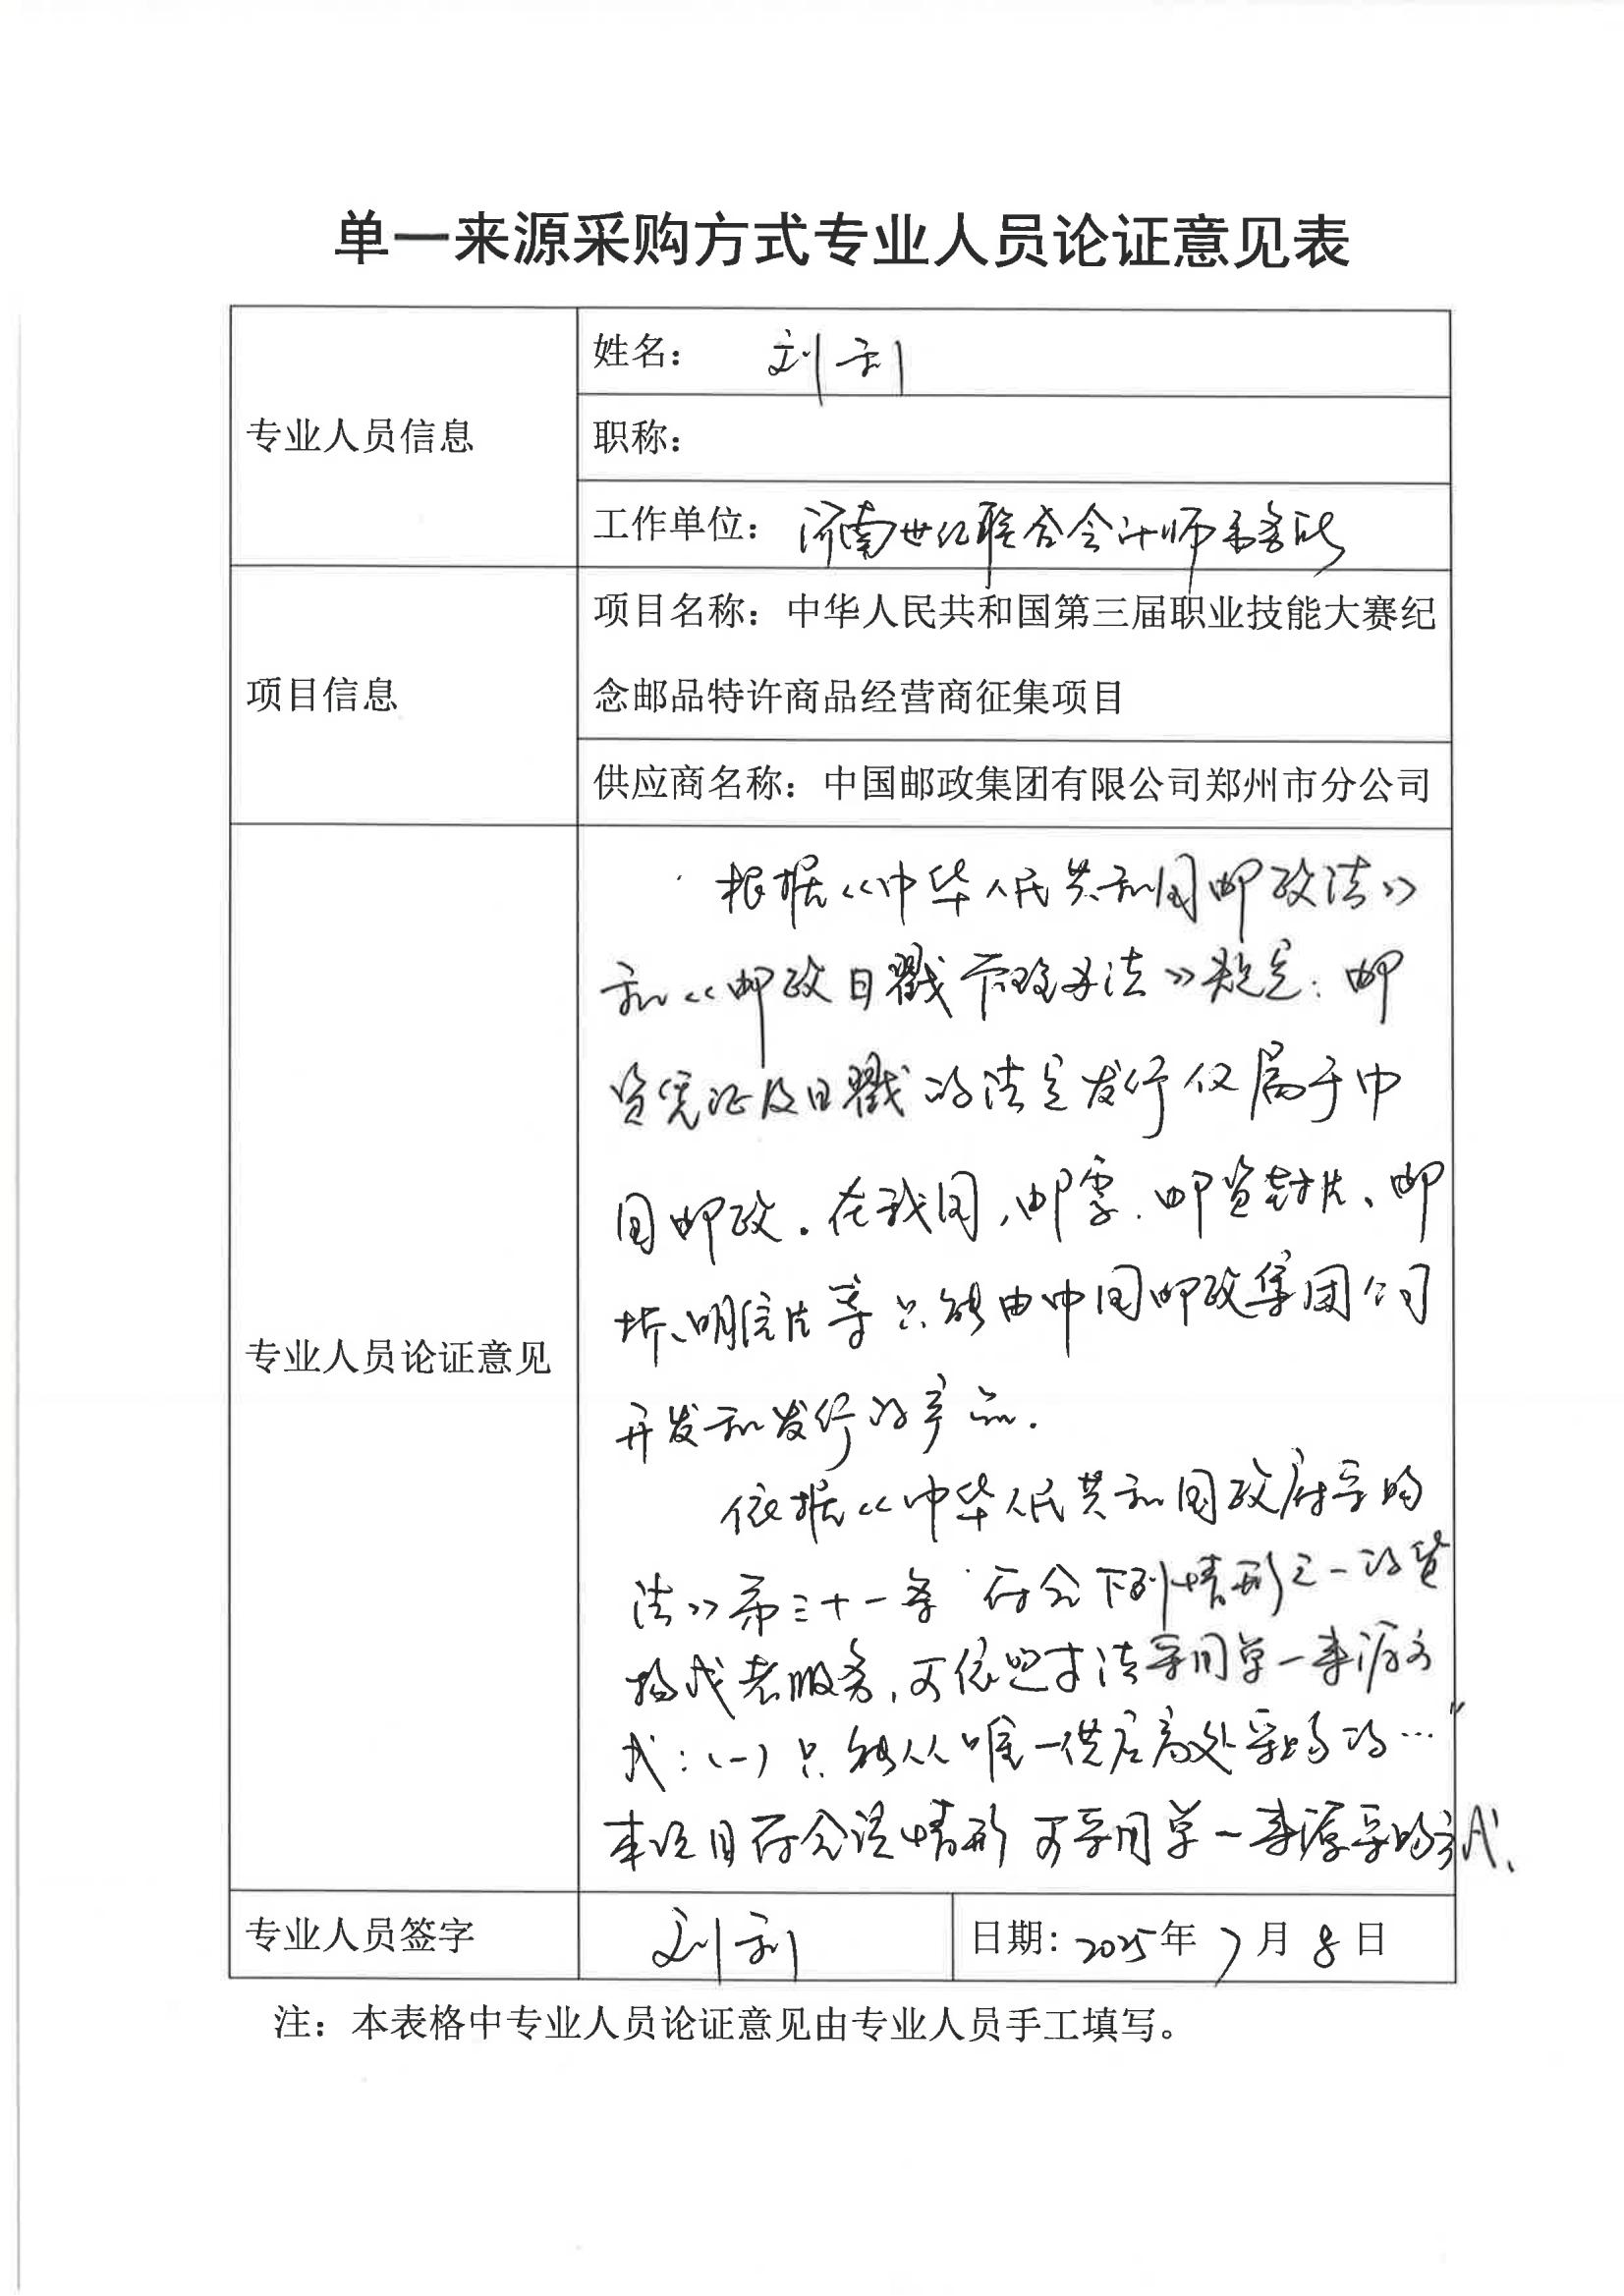 单一来源采购方式专业人员论证意见表
专业人员信息
姓名： 刘利
职称：
工作单位：济南世纪联合会计师事务所
项目信息
项目名称：中华人民共和国第三届职业技能大赛纪
念邮品特许商品经营商征集项目
供应商名称：中国邮政集团有限公司郑州市分公司
专业人员论证意见
根据《中华人民共和国邮政法》
和《邮政日戳管理办法》规定：邮
资凭证及日戳的法定发行仅属于中
国邮政。在我国，邮票、邮资封片、邮
折、明信片等只能由中国邮政集团公司
开发和发行的产品.
依据《中华人民共和国政府采购
法》第三十一条“符合下列情形之一的货
物或者服务，可依照本法采用单一来源方
式：（一）只能从唯一供应商处采购的…”
本项目符合该情形 可采用单一来源采购方式、
专业人员签字
刘利
日期: 2025年 7 月 8 日
注：本表格中专业人员论证意见由专业人员手工填写。